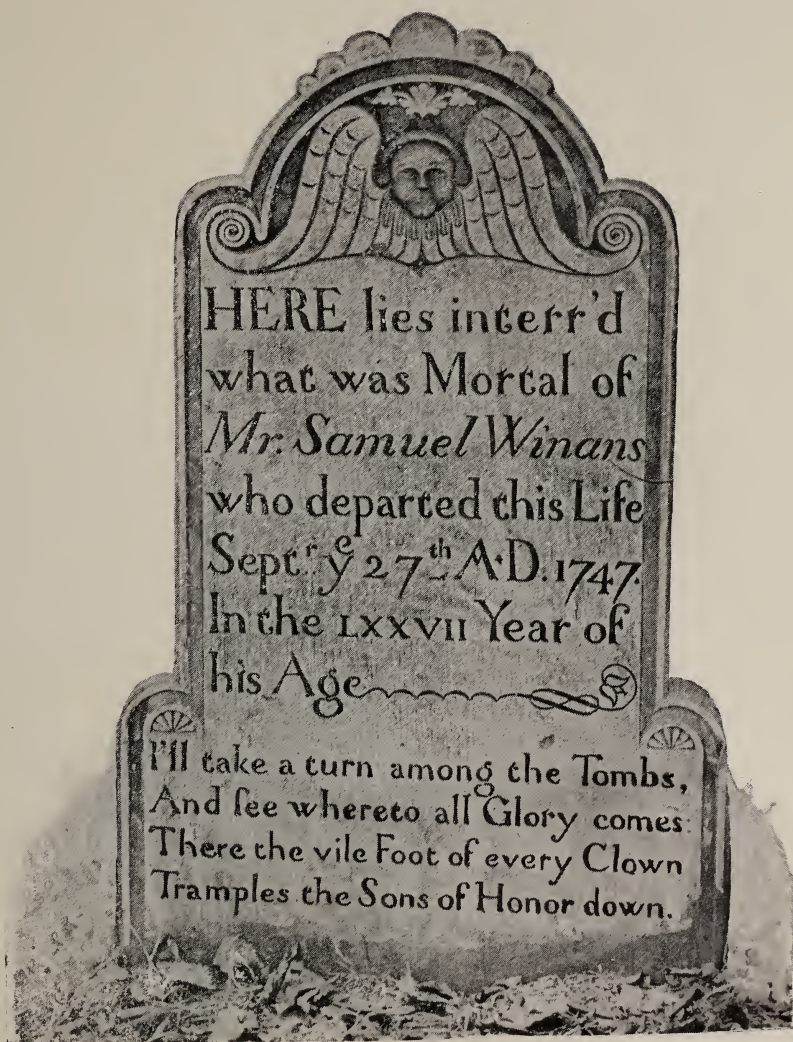 HERE lies interr'd
what was Mortal of
Mr. Samuel Winans
who departed this Life
Septʳ yᵉ 27ᵗʰ A·D. 1747.
In the LXXVII Year of
his Age
I'll take a turn among the Tombs,
And ſee whereto all Glory comes:
There the vile Foot of every Clown
Tramples the Sons of Honor down.